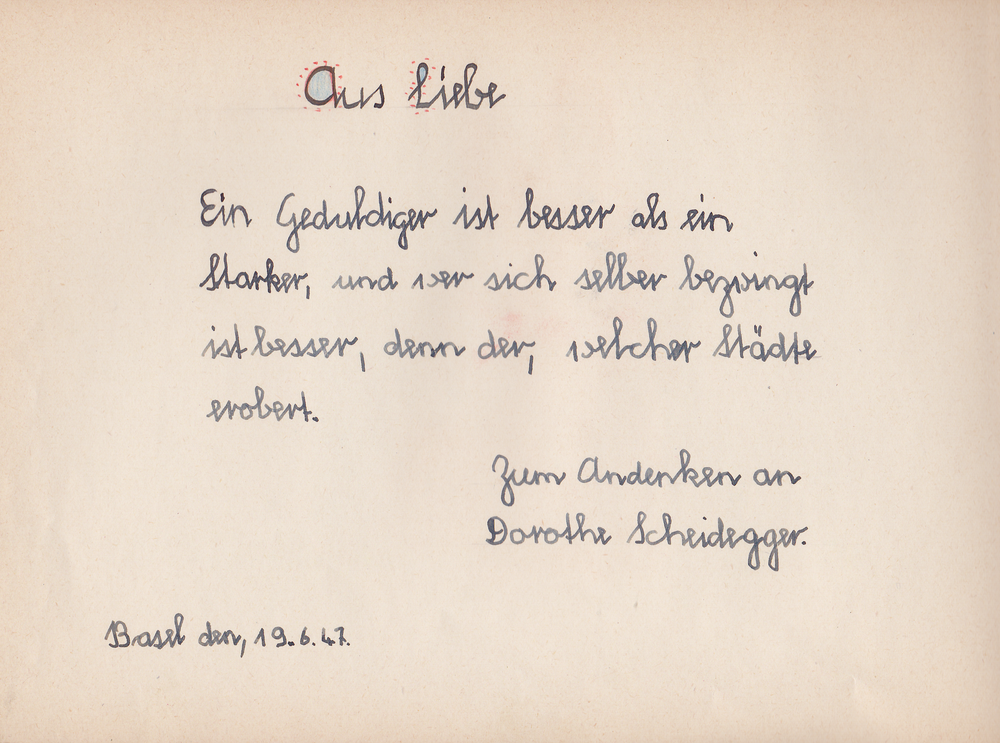 Aus Liebe
Ein Geduldiger ist besser als ein
Starker, und wer sich selber bezwingt
ist besser, denn der, welcher Städte
erobert.
Zum Andenken an
Dorothe Scheidegger.
Basel den, 19.6.47.